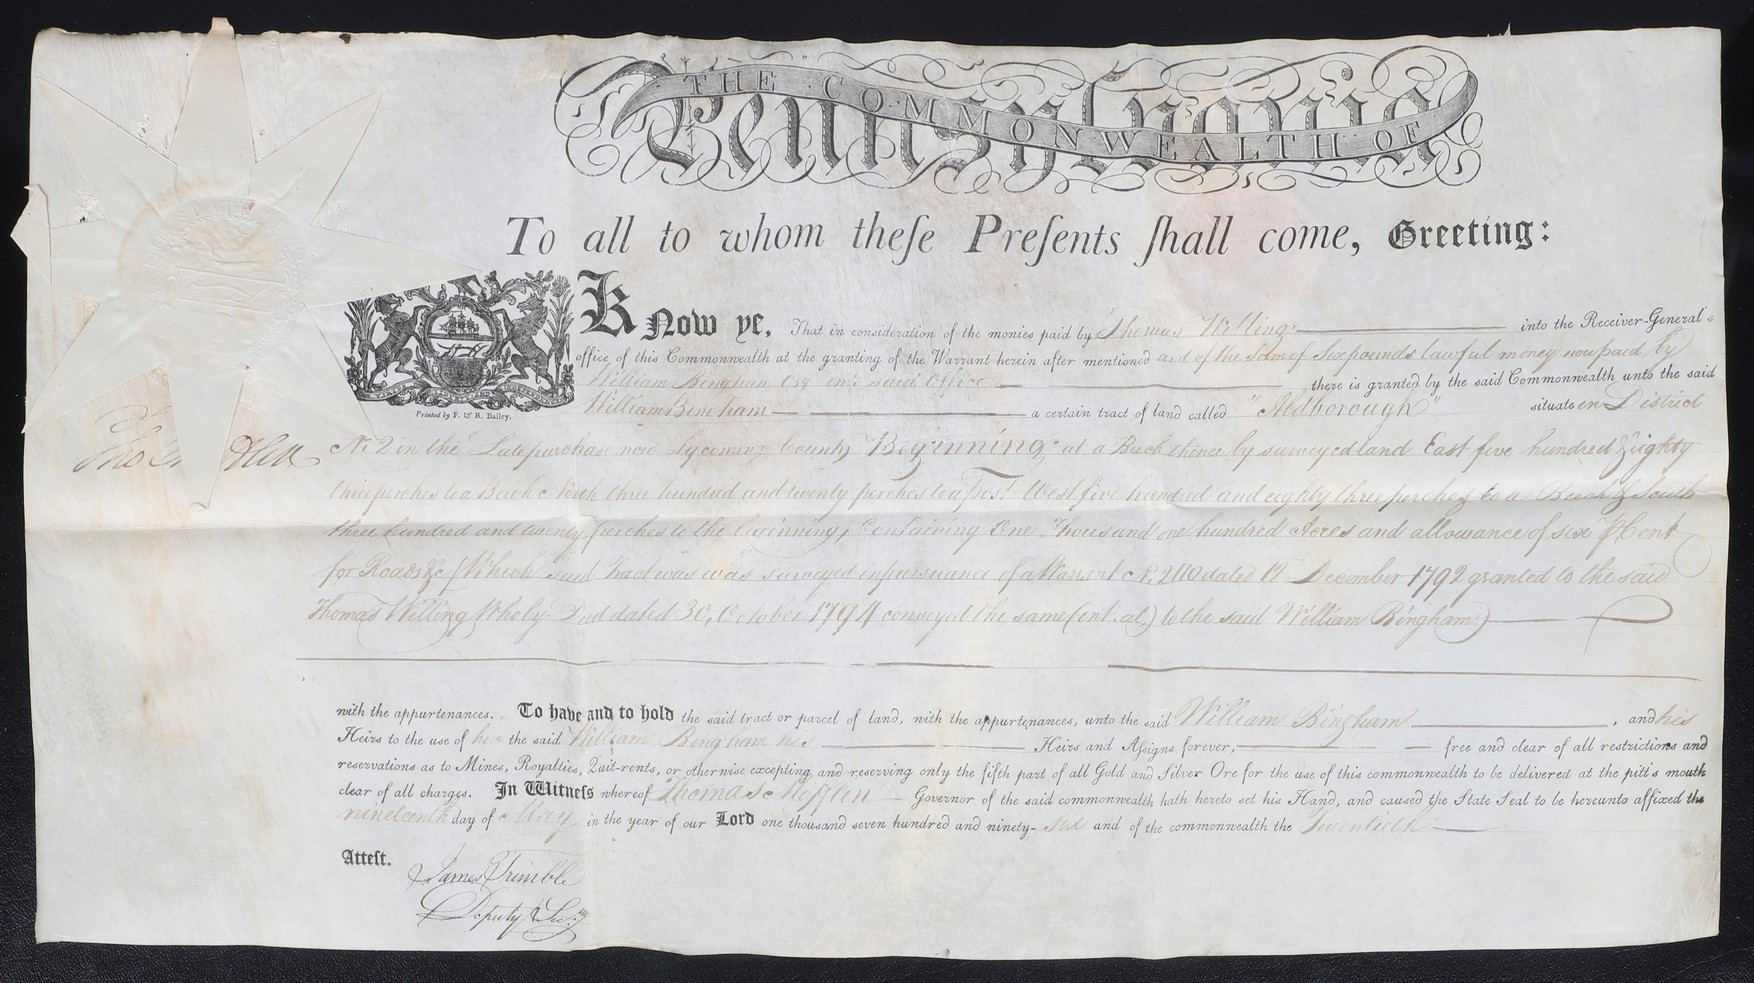 THE COMMONWEALTH OF
Pennsylvania
To all to whom theſe Preſents ſhall come, Greeting:
Know ye, That in consideration of the monies paid by Thomas Willing into the Receiver-General's
office of this Commonwealth at the granting of the Warrant herein after mentioned and of the sum of Six pounds lawful money now paid by
William Bingham Esq in said Office there is granted by the said Commonwealth unto the said
William Bingham a certain tract of land called "Aldborough" situate in District
Printed by F. & R. Bailey.
No. 2 in the Late purchase now Lycoming County Beginning at a Beech thence by surveyed land East five hundred & eighty
three perches to a Beech North three hundred and twenty perches to a Post West five hundred and eighty three perches to a Beech & South
three hundred and twenty perches to the beginning, Containing One Thousand one hundred Acres and allowance of six ⅌ Cent
for Roads &c (Which said tract was was surveyed in pursuance of a Warrant No. dated December 1792 granted to the said
Thomas Willing Who by Deed dated 30, October 1794 conveyed the same (int. al.) to the said William Bingham)
with the appurtenances. To have and to hold the said tract or parcel of land, with the appurtenances, unto the said William Bingham, and his
Heirs to the use of him the said William Bingham his Heirs and Aſsigns forever, free and clear of all restrictions and
reservations as to Mines, Royalties, Quit-rents, or otherwise excepting and reserving only the fifth part of all Gold and Silver Ore for the use of this commonwealth to be delivered at the pitt's mouth
clear of all charges. In Witneſs whereof Thomas Mifflin Governor of the said commonwealth hath hereto set his Hand, and caused the State Seal to be hereunto affixed the
nineteenth day of May in the year of our Lord one thousand seven hundred and ninety-six and of the commonwealth the Twentieth
Atteſt.
James Trimble
Deputy Secy.